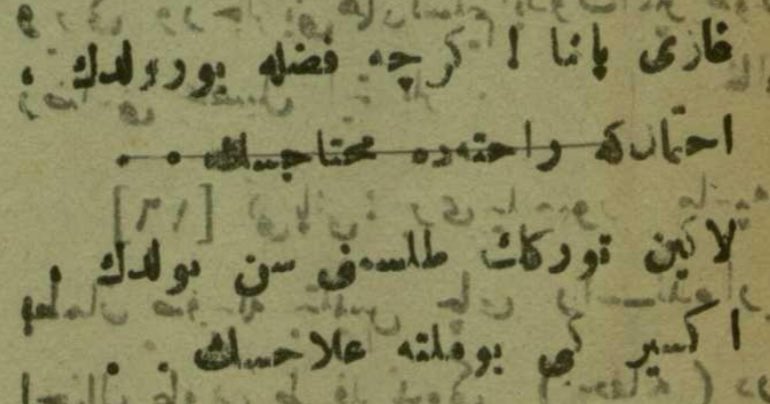 غازی پاشا ! گرچه فضله یورولدك ،
احتمالكه راحته ده محتاجسك . .
لاكین توركك طلسمنی سن بولدك ،
اكسیر كبی بوملته علاجسك . .